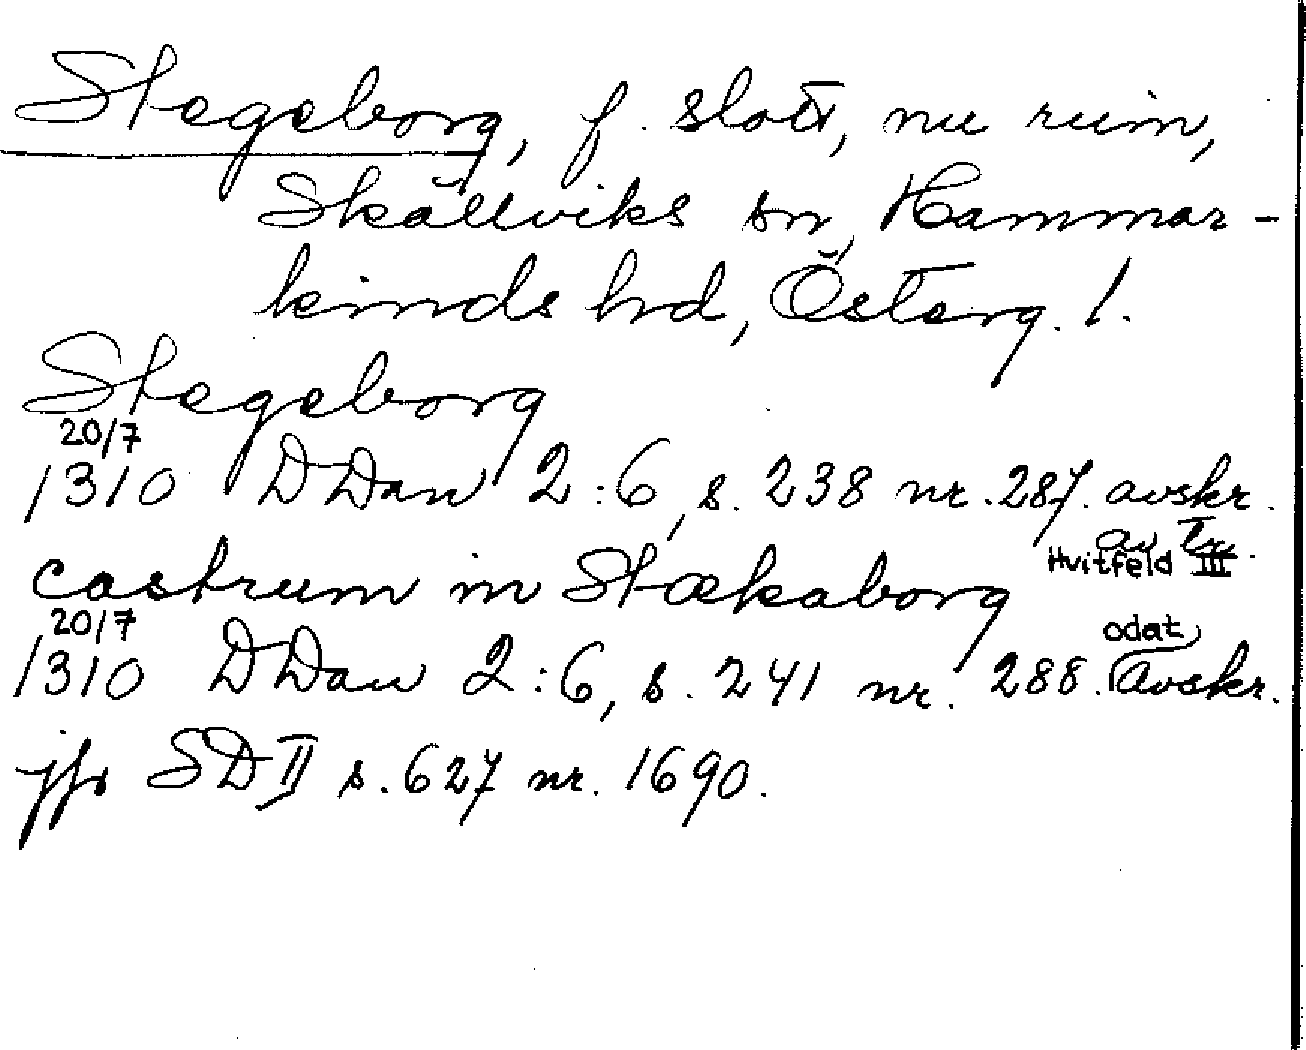 Stegeborg, f. slott, nu ruin,
Skällviks sn, Hammar-
kinds hd, Österg. l.
Stegeborg
20/7
1310 DDan 2:6, s. 238 nr. 287. avskr.
av tr.
Hvitfeld III
castrum in Stækaborg
20/7
1310 DDan 2:6, s. 241 nr. 288. odat avskr.
jfr SD II s. 627 nr. 1690.